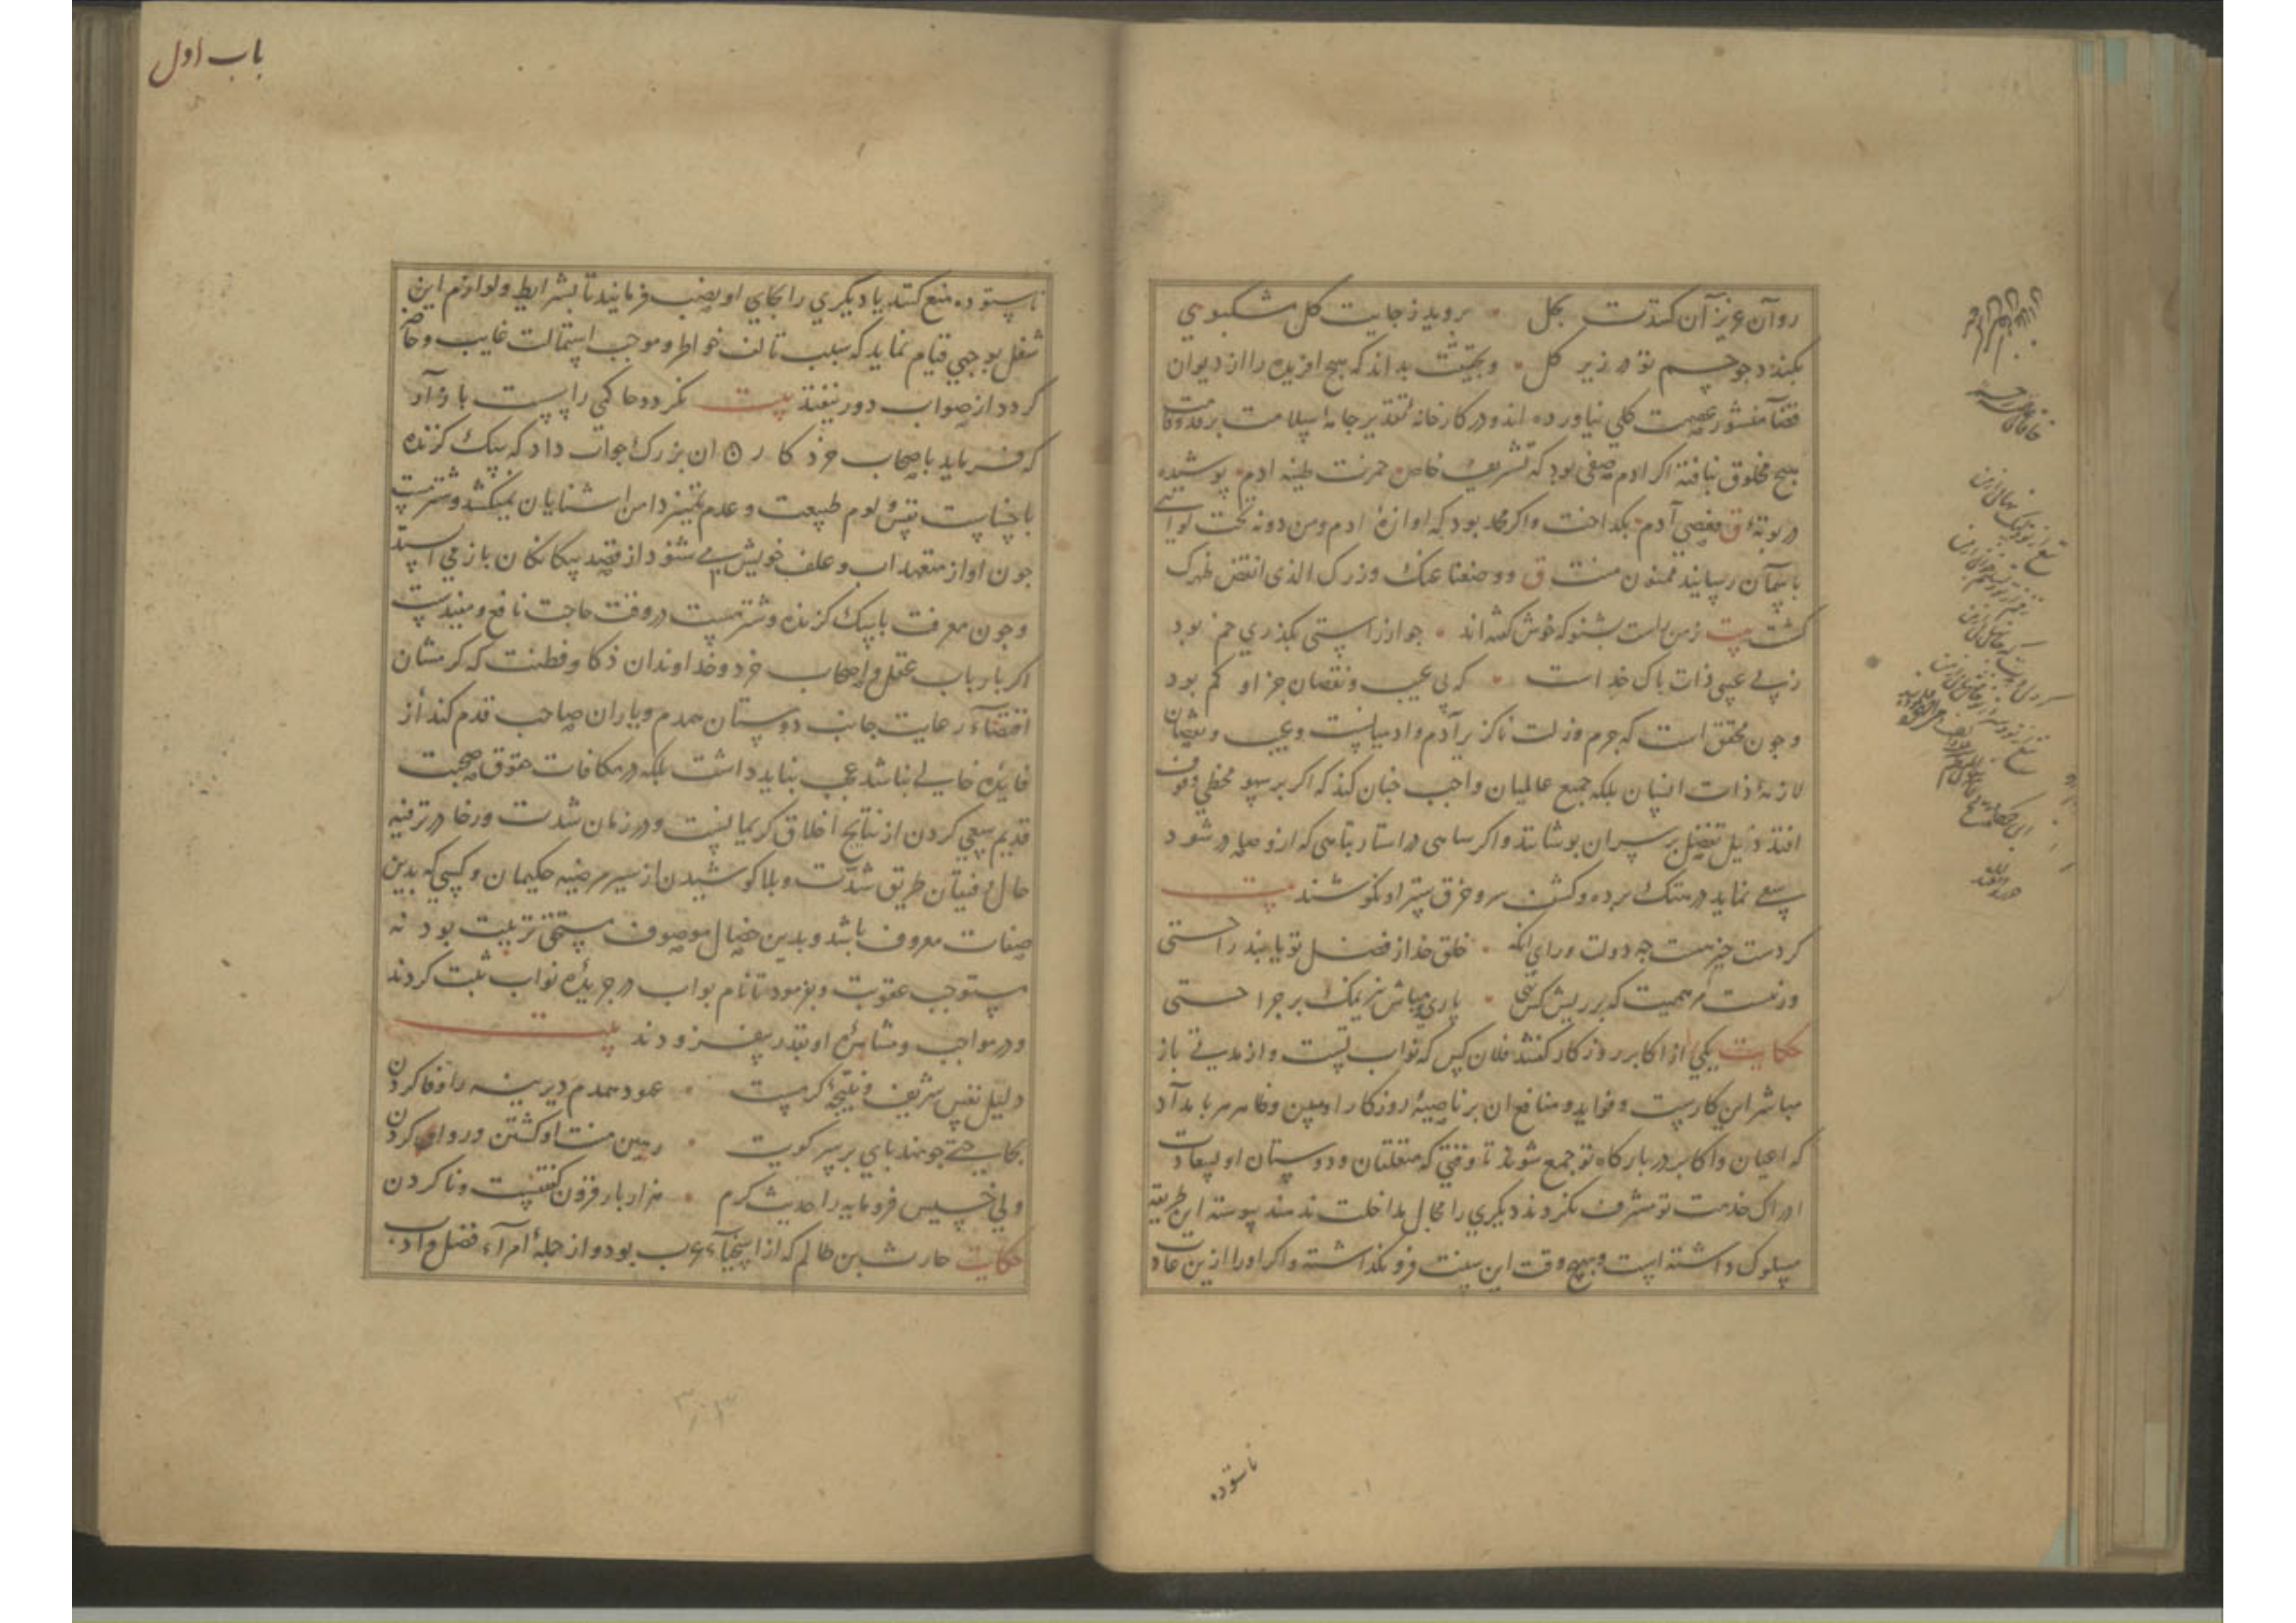 روآن عزیز آن کندت بکل • بروید ز جایت کل مشکبوی
بکندد جو جسم تو در زیر کل • و بحقیقت بداند که هیچ افریده را از دیوان
قضآ منشور عصمت کلی نیاورده اند و در کارخانهٔ تقدیر جامهٔ سلامت بر قد وقامت
هیچ مخلوق نبافته اکر ادم صفی بود که تشریف خاص خمرت طینه ادم پوشیده
در بوتهٔ ق فعصی آدم بکداخت و اکر محمد بود که اوازهٔ ادم ومن دونه تحت لوائی
باسمآن رسانید ممنون منت ق ووضعنا عنک وزرک الذی انقض ظهرک
کشت بیت زمن بشنو که خوش کفته اند • جو از راستی بکذری خم بود
زبی عیبی ذات باک خداست • که بی عیب ونقصان جز او کم بود
وجون محقق است که جرم وزلت ناکزیر آدم وادمیانست وعیب ونقصان
لازمهٔ ذات انسان بلکه جمیع عالمیان واجب جنان کند که اکر بر سهو مخطی وقوف
افتد ذیل تفضل بر سر ان بوشانند واکر ساهی در استار بناهی که ازو صادر شود
سعی نماید در هتک برده وکشف سر وخرق ستر او نکوشند بیت
کردست جیزیست جه دولت ورای انکه • خلق خدا از فضل تو یابند راحتی
ور نیست مرهمیت که بر ریش کس نهی • باری مباش نیز نمک بر جراحتی
حکایت یکی از اکابر روزکار کفتند فلان کس که نواب تست واز مدتی باز
مباشر این کارست وفواید ومنافع ان بر ناصیهٔ روزکار او مبین وظاهر هر بامداد
که اعیان واکابر در بارکاه تو جمع شوند تا وقتی که متعلقان ودوستان او بسعادت
ادراک خدمت تو مشرف نکردند دیکری را مجال مداخلت ندهند پیوسته این طریقه
مسلوک داشته است وهیچ وقت این سنت فرو نکذاشته واکر اورا ازین عادت
ناستوده
باب اول
ناستوده منع کنند یا دیکری را بجای او نصب فرمایند تا بشرایط ولوازم این
شغل بوجهی قیام نماید که سبب تالف خواطر وموجب استمالت غایب وحاضر
کردد از صواب دور نیفتد بیت نکردد حاکمی راپست بازار
که فرماید باصحاب خرد کار ان بزرک جواب داد که سک کزنده
با خساست نفس ولوم طبیعت وعدم تمیز دامن اشنایان نمیکشد وشتر مست
جون اواز متعهد اب وعلف خویش می شنود از قصد بیکانکان باز می ایستد
وجون معرفت با سک کزنده وشتر مست در وقت حاجت نافع ومفیدست
اکر با رباب عقل واصحاب خرد وخداوندان ذکا وفطنت که کرمشان
اقتضاء رعایت جانب دوستان همدم ویاران صاحب قدم کند از
فایدهٔ خالی نباشد عجب نباید داشت بلکه در مکافات حقوق صحبت
قدیم سعی کردن از نتایج اخلاق کریمانست ودر زمان شدت ورخا در ترفیه
حال رفیقان طریق شدت وبلا کوشیدن از سیر مرضیه حکیمان وکسی که بدین
صفات معروف باشد وبدین خصال موصوف مستحق تربیت بود نه
مستوجب عقوبت وبفرمود تا نام بواب در جریدهٔ نواب ثبت کردند
ودر مواجب ومشاهرهٔ او بقدر بیفزودند بیت
دلیل نفس شریف ونتیجهٔ کرمست • عهود همدم دیرینه را وفا کردن
بجای حتی جو نهند بای بر سر کویت • رهین منت او کشتن وروا کردن
ولی خسیس فرومایه را حدیث کرم • هزار بار فزون کفتنیست ونا کردن
حکایت حارث بن ظالم که از اسخیآء عرب بود واز جملهٔ امرآء فضل وادب